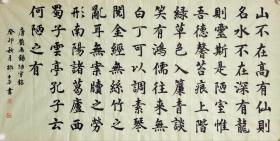 山不在高有仙則
名水不在深有龍
則靈斯是陋室惟
吾德馨苔痕上階
綠草色入簾青談
笑有鴻儒往來無
白丁可以調素琴
閱金經無絲竹之
亂耳無案牘之勞
形南陽諸葛廬西
蜀子雲亭孔子云
何陋之有
唐劉禹錫陋室銘
癸卯秋月 書